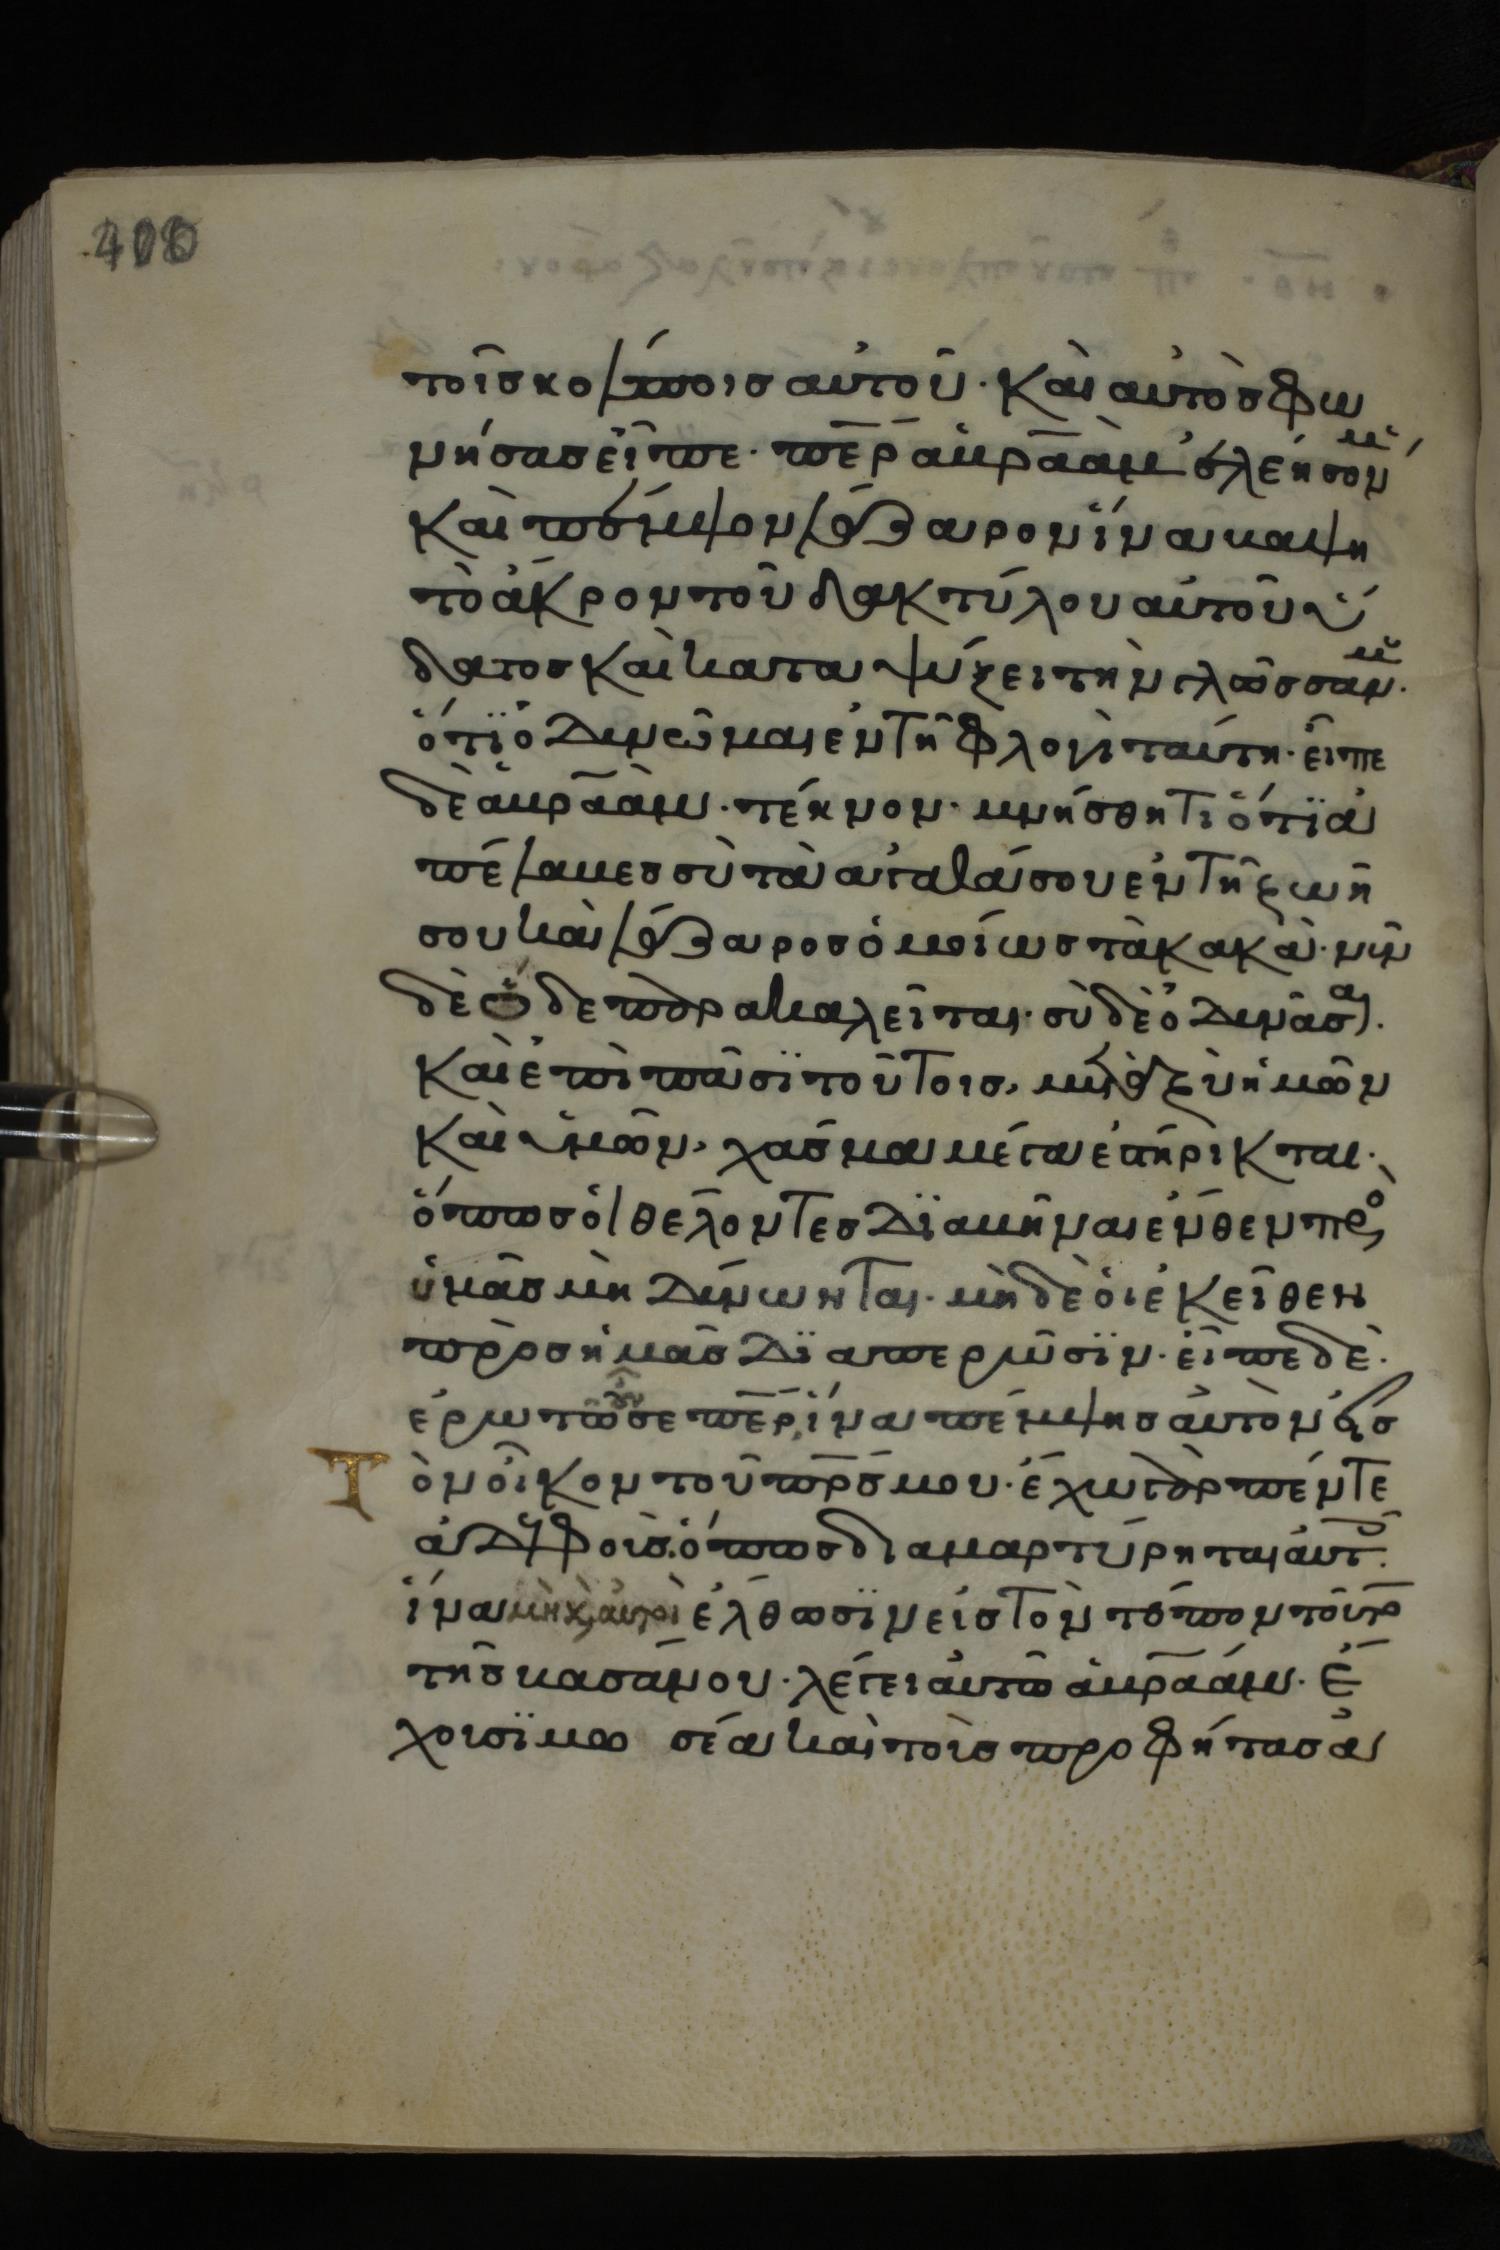 τοῖς κόλποις αὐτοῦ· καὶ αὐτὸς φω
νήσας εἶπε· πε̅ρ ἀβρ̅αὰμ ἐλέησόν μ
καὶ πέμψον λάζαρον ἵνα βάψη
τὸ ἄκρον τοῦ δακτύλου αὐτοῦ ὕ
δατος καὶ καταψύξει τὴν γλῶσσάν μ·
ὅτϊ ὀδυνῶμαι ἐν τῆ φλογὶ ταύτη· εἶπε
δὲ ἀβρ̅αὰμ· τέκνον· μνήσθητι ὅτϊ ἀ
πέλαβες σὺ τὰ ἀγαθά σου ἐν τῆ ζωῆ
σου καὶ λάζαρος ὁμοίως τὰ κακὰ· νῦν
δὲ ὧδε παρακαλεῖται· σὺ δὲ ὀδυνᾶσαι·
καὶ ἐπὶ πᾶσϊ τοῦτοις, μεταξὺ ἡμῶν
καὶ ὑμῶν, χάσμα μέγα ἐστήρικται·
ὅπως οἱ θέλοντες διαβῆναι ἔνθεν πρὸς
ὑμᾶς μὴ δύνωνται· μὴ δὲ οἱ ἐκεῖθεν
πρὸς ἡμᾶς δϊαπερῶσϊν· εἶπε δὲ·
ἐρωτῶ οὖν σε πε̅ρ, ἵνα πέμψης αὐτὸν εἰς
Τὸν οἶκον τοῦ πρ̅ς μου· ἔχω γὰρ πέντε
ἀδελφοὺς· ὅπως διαμαρτύρηται αὐτ·
ἵνα μὴ κ, αὐτοὶ ἔλθωσϊν εἰς τὸν τόπον τοῦτο
τῆς βασάνου· λέγει αὐτῶ ἀβρ̅αάμ· ἔ
χουσϊ μω σέα καὶ τοὺς προφήτας ἀ